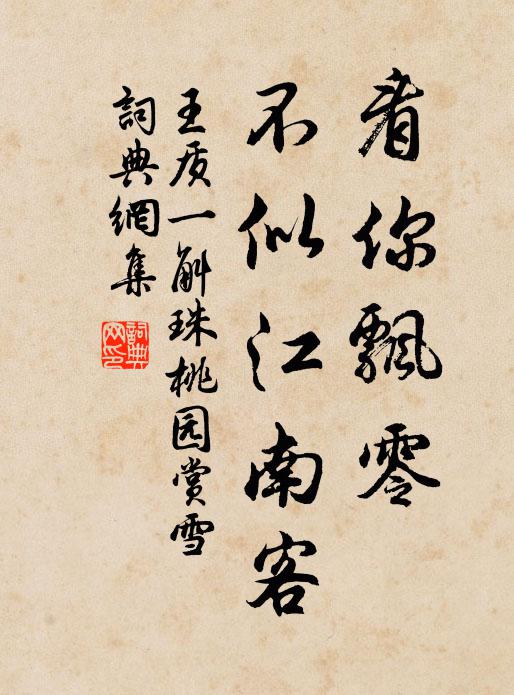 看你飄零
不似江南客
王质一斛珠桃园赏雪
詞典網集
詞典
网印